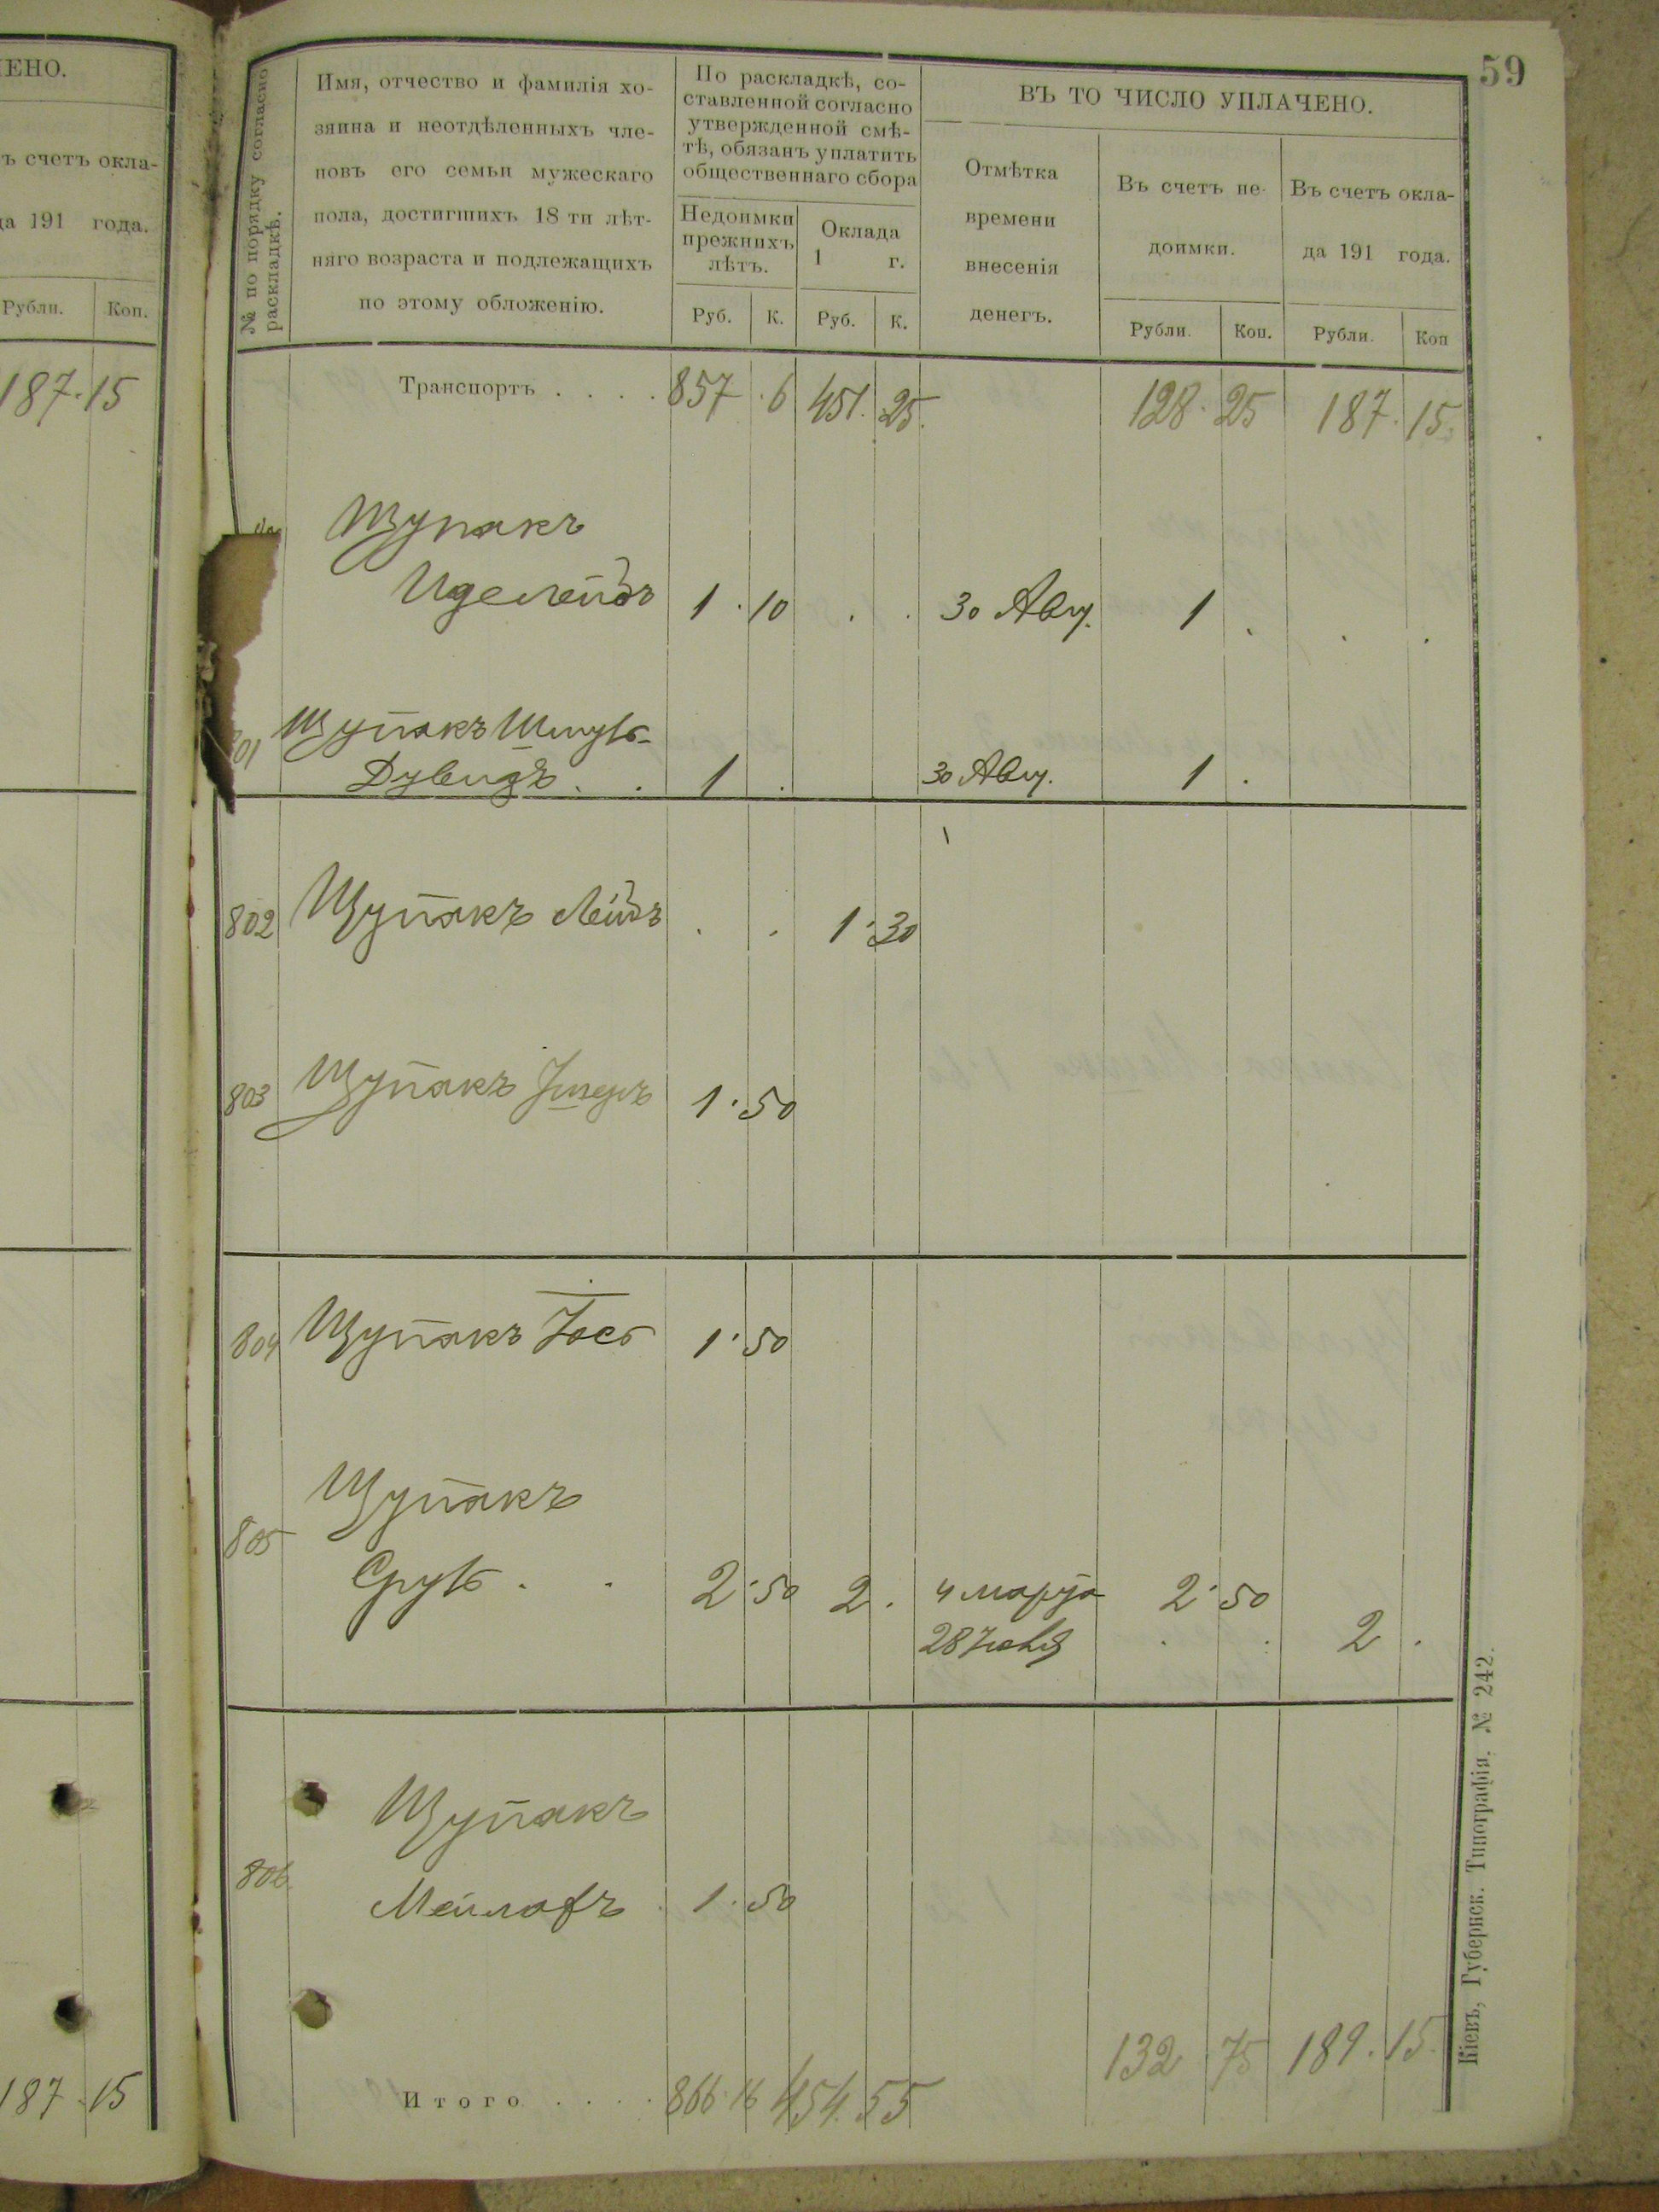 ЧЕНО.
ъ счетъ окла-
да 191 года.
Рубли. Коп.
187 15
187 15
59
№ по порядку согласно
раскладкѣ.
Имя, отчество и фамилія хо-
зяина и неотдѣленныхъ чле-
новъ его семьи мужескаго
пола, достигшихъ 18 ти лѣт-
няго возраста и подлежащихъ
по этому обложенію.
По раскладкѣ, со-
ставленной согласно
утвержденной смѣ-
тѣ, обязанъ уплатить
общественнаго сбора
Недоимки
прежнихъ
лѣтъ.
Оклада
1 г.
Руб. К. Руб. К.
ВЪ ТО ЧИСЛО УПЛАЧЕНО.
Отмѣтка
времени
внесенія
денегъ.
Въ счетъ не-
доимки.
Въ счетъ окла-
да 191 года.
Рубли. Коп. Рубли. Коп
Транспортъ . . . . 857 6 451 25 128 25 187 15
Щупакъ
1 10 30 Авг. 1
801 Щупакъ
Дувидъ 1 30 Авг. 1
802 Щупакъ Лейбъ 1 30
803 Щупакъ 1 50
804 Щупакъ Іось 1 50
Щупакъ
805
Сруль 2 50 2 4 марта 2 50
28 2
Щупакъ
806
Мейлахъ 1 50
132 75 189 15
Итого . . . . 866 16 454 55
Кіевъ, Губернск. Типографія, № 242.